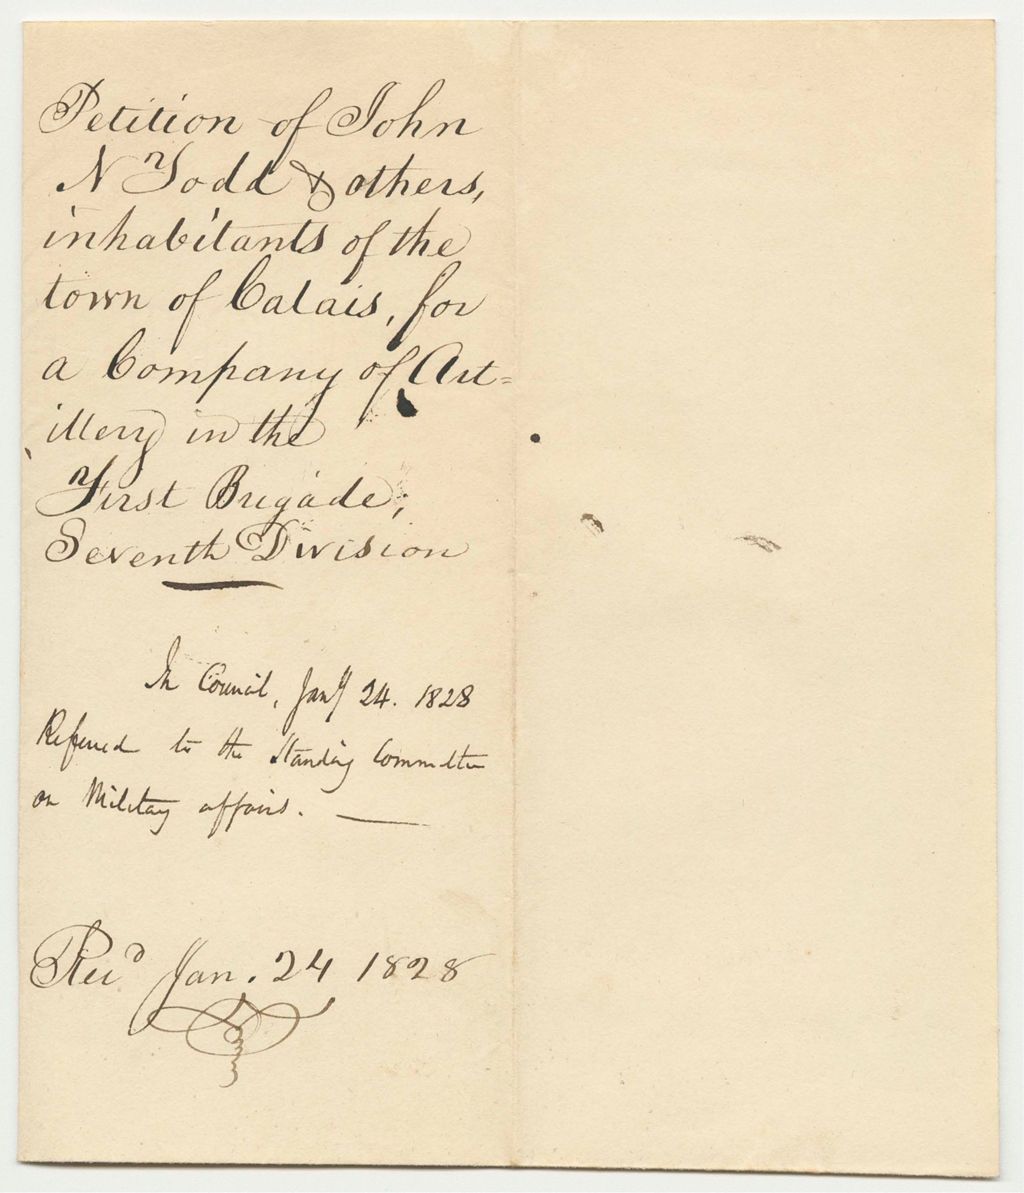 Petition of John
N Todd & others,
inhabitants of the
town of Calais, for
a Company of Art=
illery in the
First Brigade,
Seventh Division
In Council, Jany 24. 1828
Referred to the Standing Committee
on Military affairs. —
Recd Jan. 24 1828